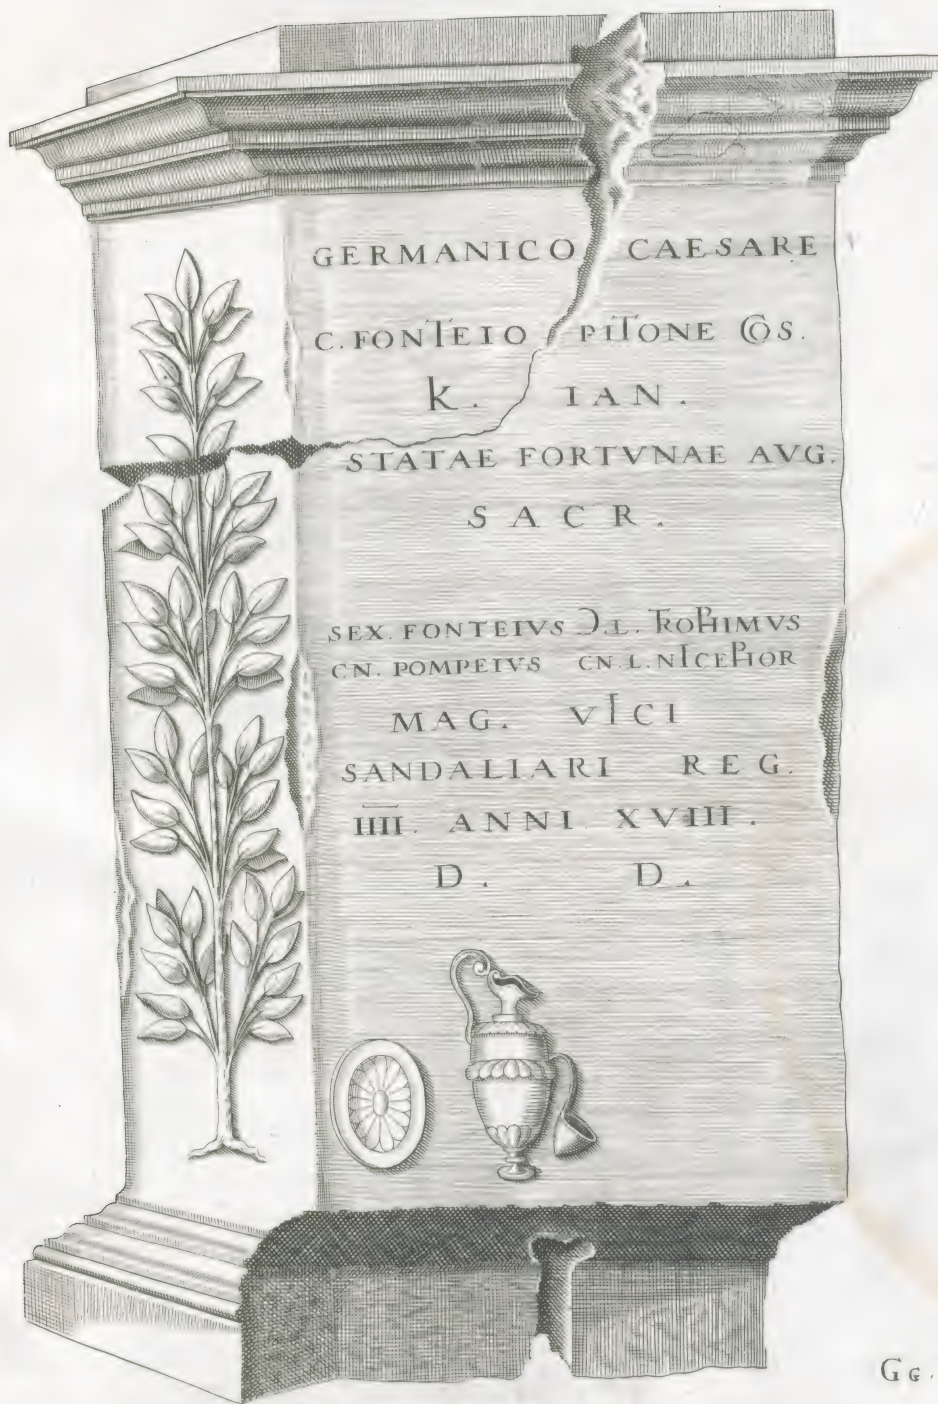 GERMANICO CAESARE
C. FONTEIO PITONE COS.
K. IAN.
STATAE FORTVNAE AVG.
SACR.
SEX. FONTEIVS Ɔ. L. TROPHIMVS
CN. POMPEIVS CN. L. NICEPHOR
MAG. VICI
SANDALIARI REG.
IIII. ANNI XVIII.
D. D.
GG.